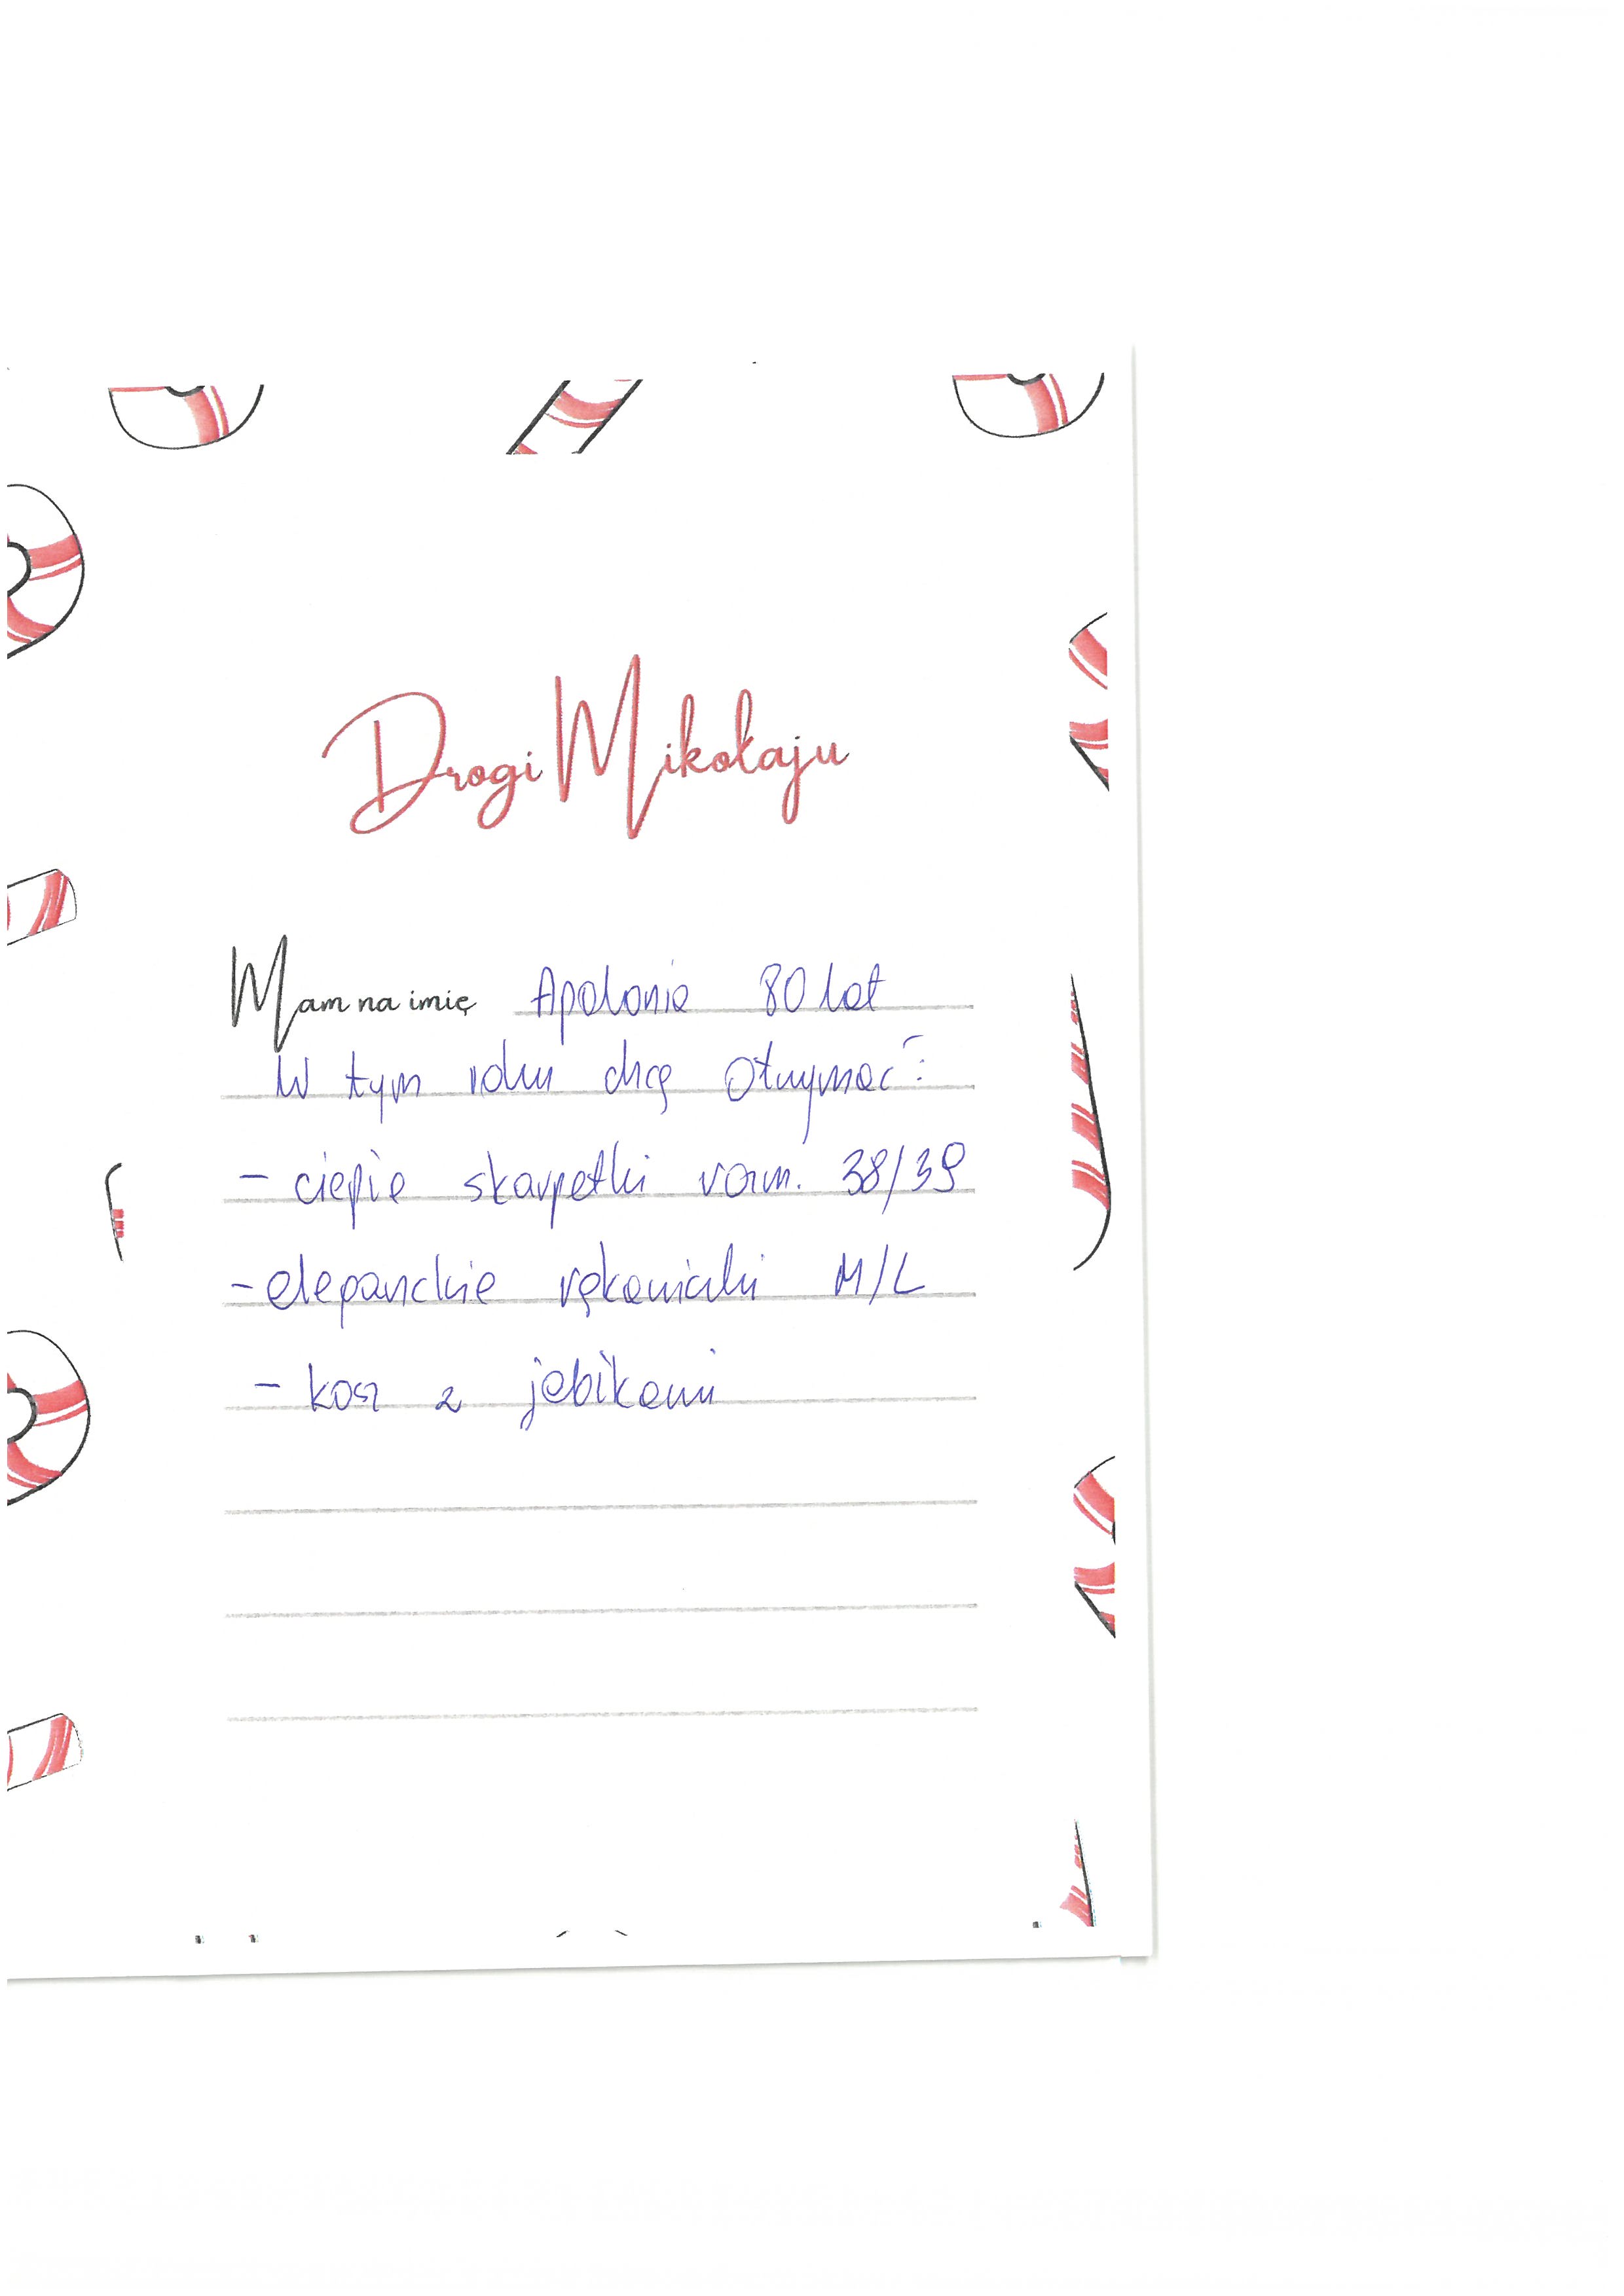 Drogi Mikołaju
Mam na imię Apolonia 80 lat
W tym roku chcę otrzymać:
- ciepłe skarpetki rozm. 38/39
- eleganckie rękawiczki M/L
- kosz z jabłkami